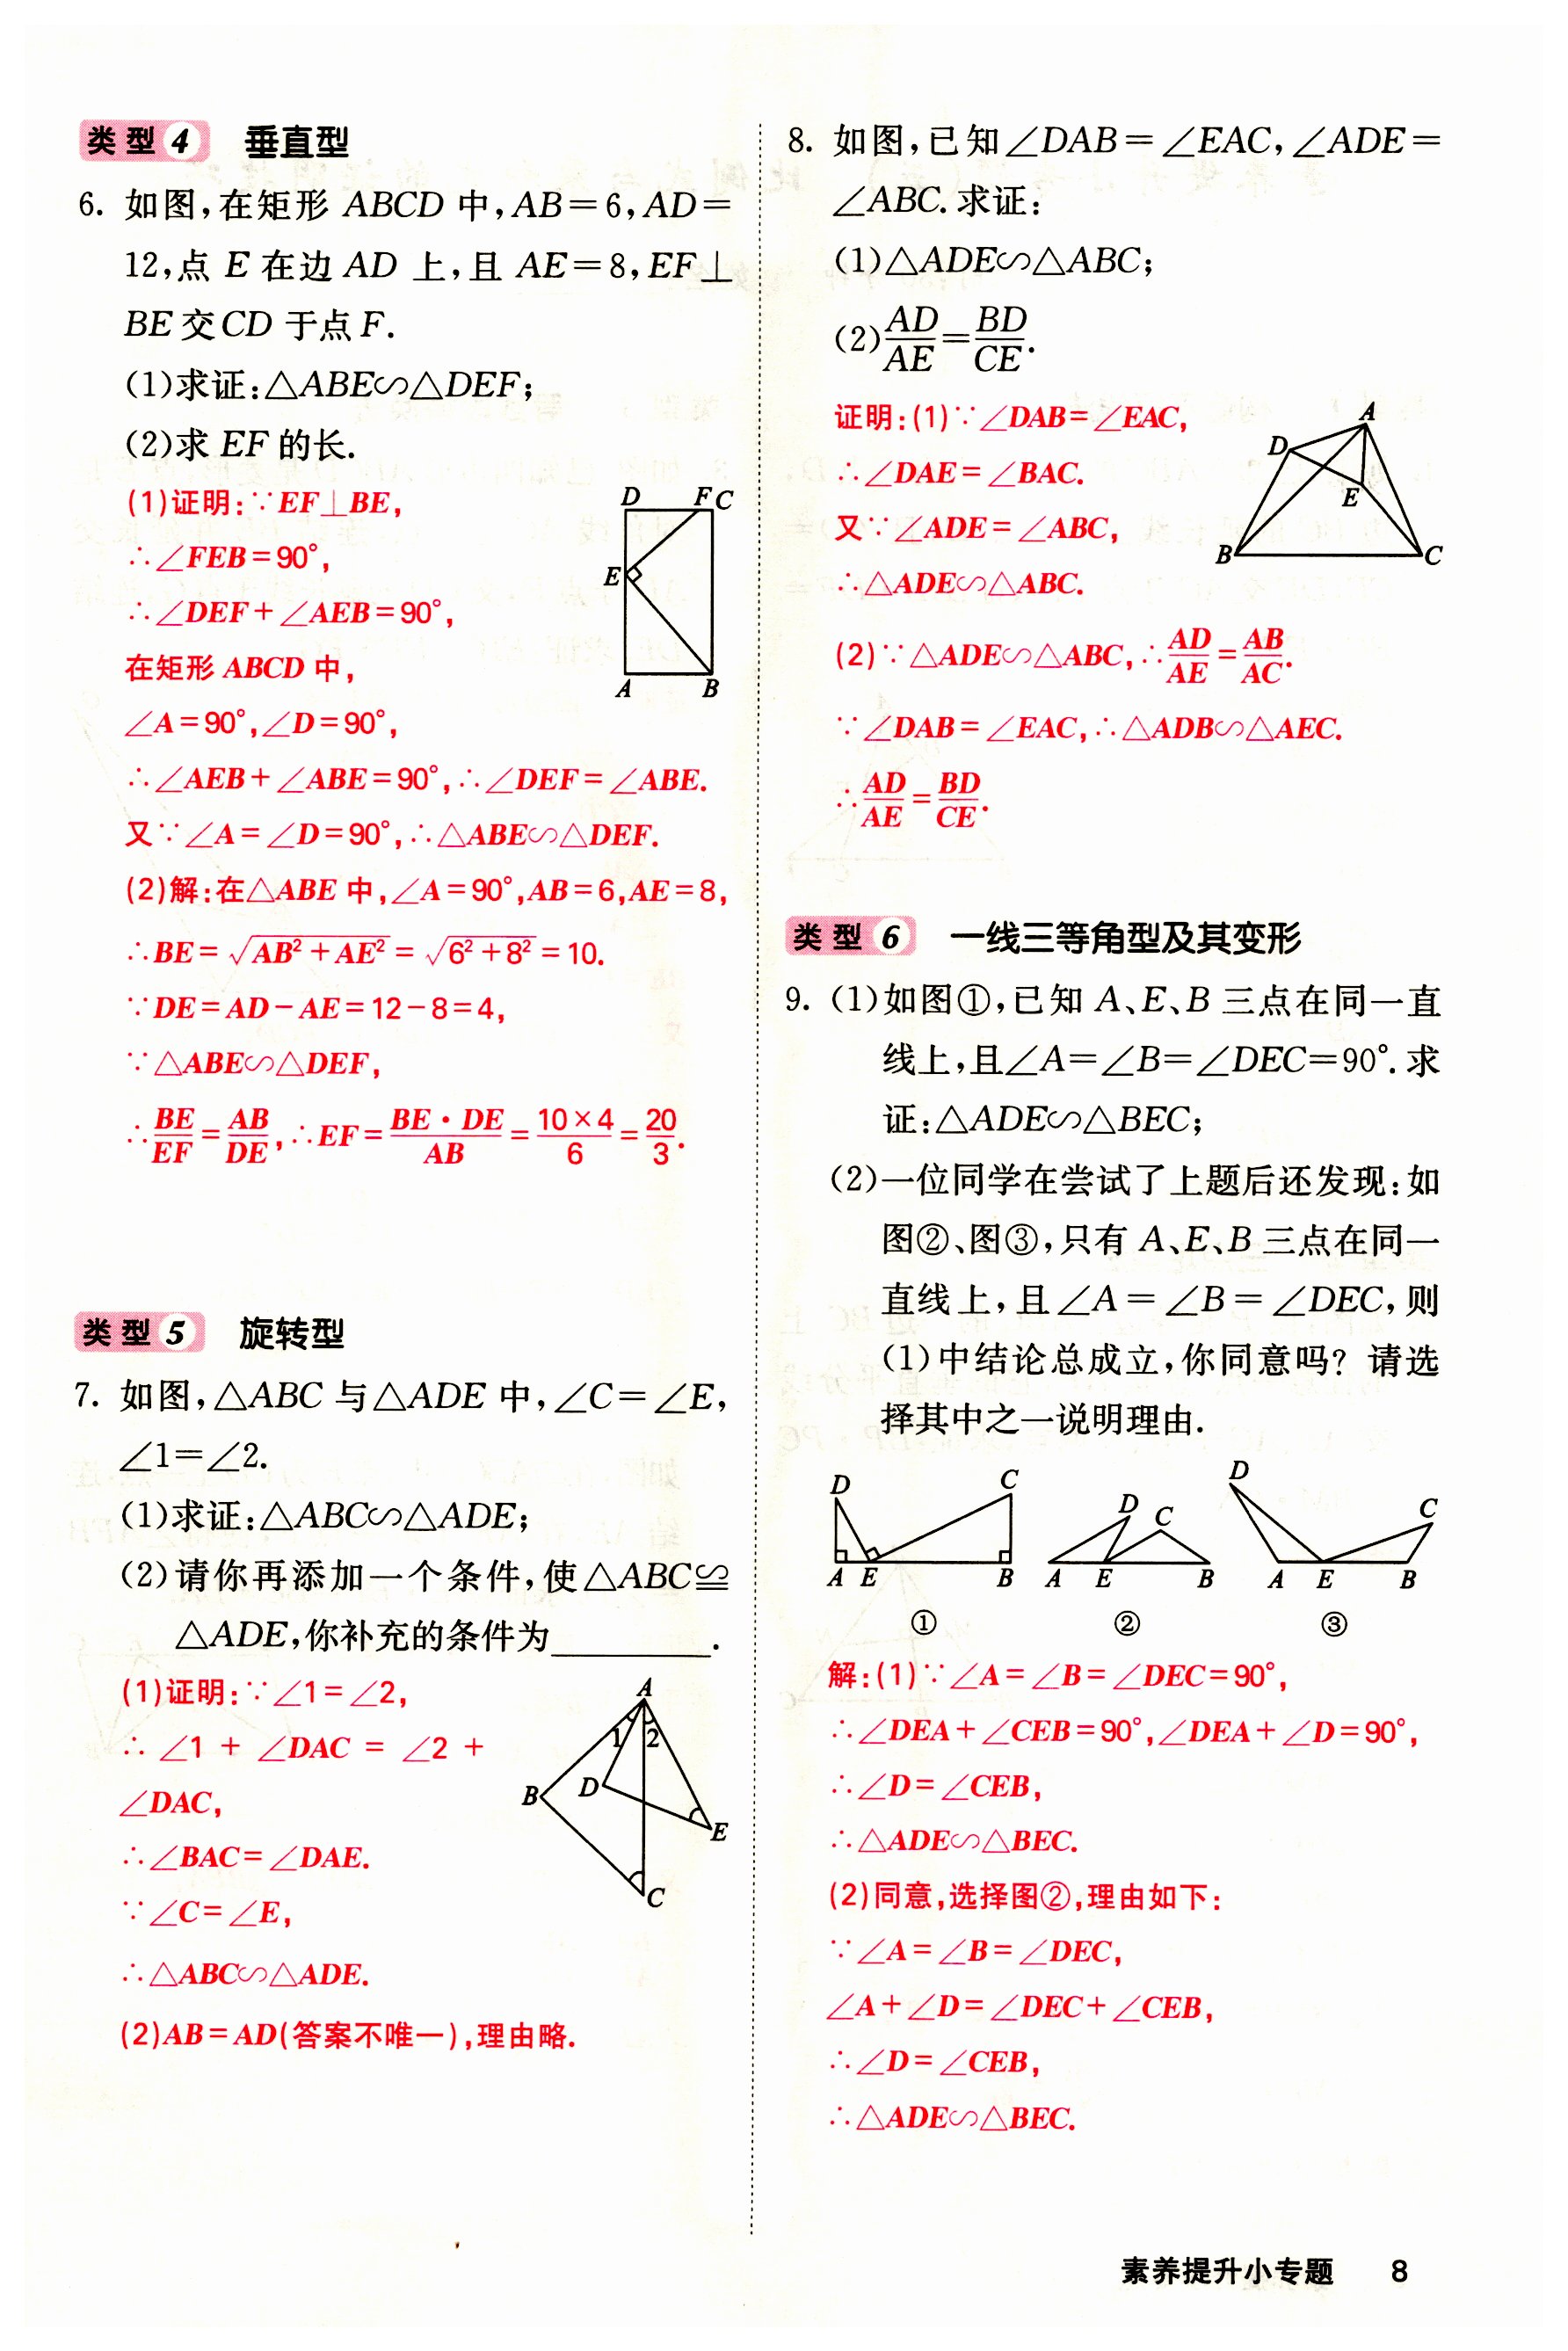 类型4 垂直型
6. 如图,在矩形 ABCD 中,AB=6,AD=
12,点 E 在边 AD 上,且 AE=8,EF⊥
BE 交 CD 于点 F.
(1)求证:△ABE∽△DEF;
(2)求 EF 的长.
(1)证明:∵EF⊥BE,
∴∠FEB=90°,
∴∠DEF+∠AEB=90°,
在矩形 ABCD 中,
∠A=90°,∠D=90°,
∴∠AEB+∠ABE=90°,∴∠DEF=∠ABE.
又∵∠A=∠D=90°,∴△ABE∽△DEF.
(2)解:在△ABE 中,∠A=90°,AB=6,AE=8,
∴BE=√(AB²+AE²)=√(6²+8²)=10.
∵DE=AD-AE=12-8=4,
∵△ABE∽△DEF,
∴BE/EF=AB/DE,∴EF=BE·DE/AB=10×4/6=20/3.
D F C
E
A B
类型5 旋转型
7. 如图,△ABC 与△ADE 中,∠C=∠E,
∠1=∠2.
(1)求证:△ABC∽△ADE;
(2)请你再添加一个条件,使△ABC≌
△ADE,你补充的条件为________.
(1)证明:∵∠1=∠2,
∴∠1+∠DAC=∠2+
∠DAC,
∴∠BAC=∠DAE.
∵∠C=∠E,
∴△ABC∽△ADE.
(2)AB=AD(答案不唯一),理由略.
A
1 2
B D
E
C
8. 如图,已知∠DAB=∠EAC,∠ADE=
∠ABC.求证:
(1)△ADE∽△ABC;
(2)AD/AE=BD/CE.
证明:(1)∵∠DAB=∠EAC,
∴∠DAE=∠BAC.
又∵∠ADE=∠ABC,
∴△ADE∽△ABC.
(2)∵△ADE∽△ABC,∴AD/AE=AB/AC.
∵∠DAB=∠EAC,∴△ADB∽△AEC.
∴AD/AE=BD/CE.
A
D
E
B C
类型6 一线三等角型及其变形
9. (1)如图①,已知 A、E、B 三点在同一直
线上,且∠A=∠B=∠DEC=90°.求
证:△ADE∽△BEC;
(2)一位同学在尝试了上题后还发现:如
图②、图③,只有 A、E、B 三点在同一
直线上,且∠A=∠B=∠DEC,则
(1)中结论总成立,你同意吗?请选
择其中之一说明理由.
D C D C D C
A E B A E B A E B
① ② ③
解:(1)∵∠A=∠B=∠DEC=90°,
∴∠DEA+∠CEB=90°,∠DEA+∠D=90°,
∴∠D=∠CEB,
∴△ADE∽△BEC.
(2)同意,选择图②,理由如下:
∵∠A=∠B=∠DEC,
∠A+∠D=∠DEC+∠CEB,
∴∠D=∠CEB,
∴△ADE∽△BEC.
素养提升小专题 8